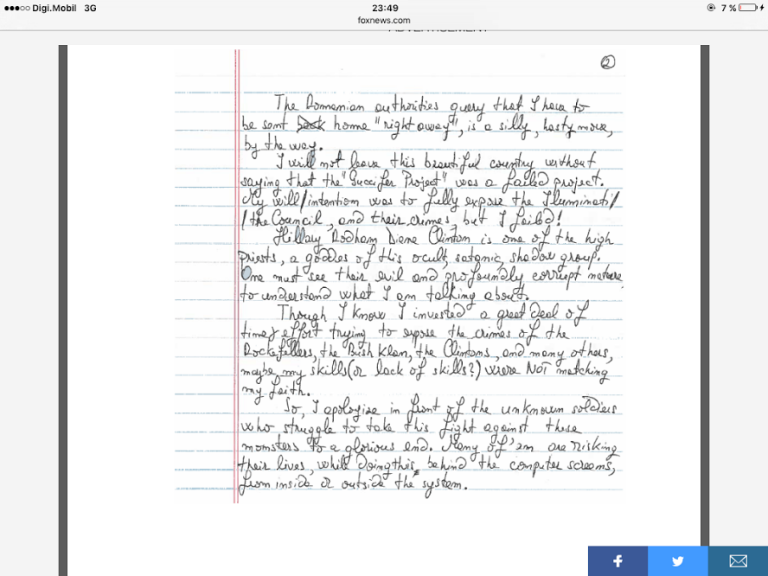 ●●●○○ Digi.Mobil 3G 23:49 7 %
foxnews.com
ADVERTISEMENT
2
The Romanian authorities query that I have to
be sent back home "right away", is a silly, hasty move,
by the way.
I will not leave this beautiful country without
saying that the "Guccifer Project" was a failed project.
My will/intention was to fully expose the Illuminati/
/the Council, and their crimes, but I failed!
Hillary Rodham Diane Clinton is one of the high
priests, a goddes of this occult, satanic, shadow group.
One must see their evil and profoundly corrupt nature
to understand what I am talking about.
Though I know I invested a great deal of
time, effort trying to expose the crimes of the
Rockefellers, the Bush Klan, the Clintons, and many others,
maybe my skills (or lack of skills?) were NOT matching
my faith.
So, I apologize in front of the unknown soldiers
who struggle to take this fight against these
monsters to a glorious end. Many of 'em are risking
their lives, while doing this, behind the computer screens,
from inside or outside the system.